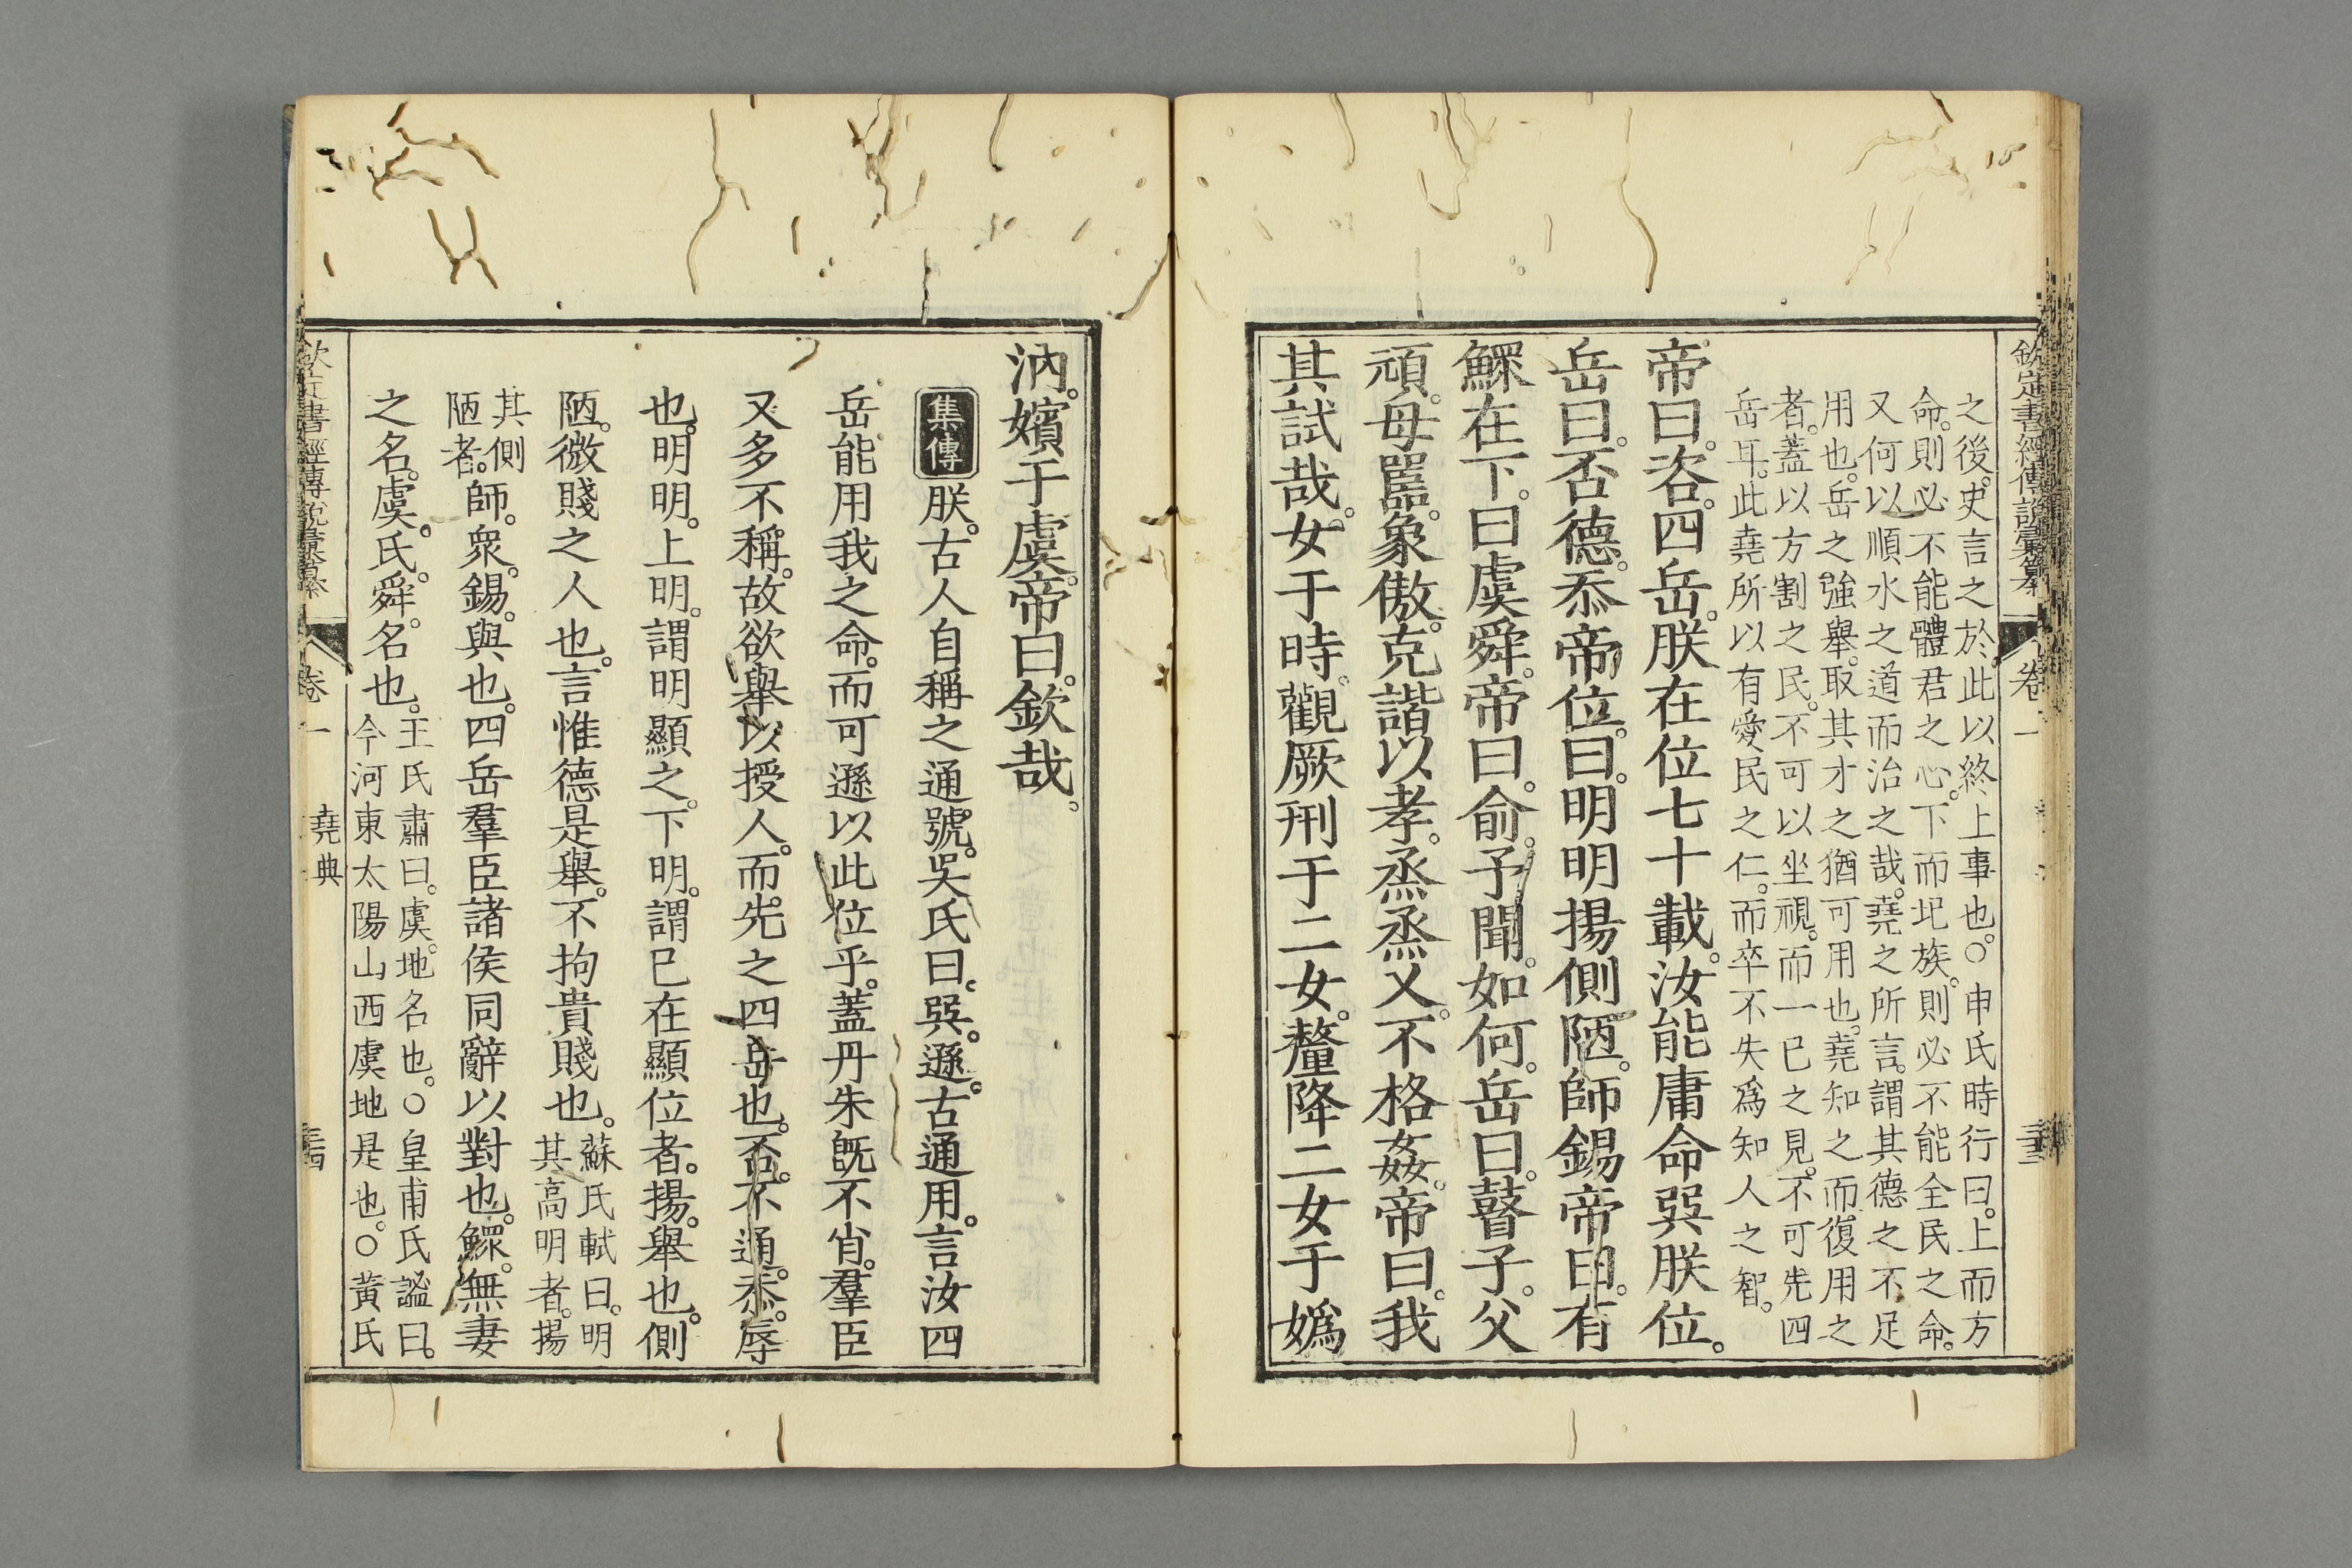 欽定書經傳說彙纂 卷一
之後。史言之於此以終上事也。○申氏時行曰。上而方
命。則必不能體君之心。下而圮族。則必不能全民之命。
又何以順水之道而治之哉。堯之所言。謂其德之不足
用也。岳之強舉。取其才之猶可用也。堯知之而。復用之
者。蓋以方割之民。不可以坐視。而一已之見。不可先四
岳耳。此堯所以有愛民之仁。而卒不失爲知人之智。
帝曰。咨。四岳。朕在位七十載。汝能庸命巽朕位。
岳曰。否德。忝帝位。曰。明明揚側陋。師錫帝曰。有
鰥在下。曰虞舜。帝曰。俞。予聞。如何。岳曰。瞽子。父
頑。母嚚。象傲。克諧以孝。烝烝乂。不格姦。帝曰。我
其試哉。女于時。觀厥刑于二女。釐降二女于嬀
汭。嬪于虞。帝曰。欽哉。
集傳 朕。古人自稱之通號。吳氏曰。巽。遜。古通用。言汝四
岳能用我之命。而可遜以此位乎。蓋丹朱旣不肖。羣臣
又多不稱。故欲舉以授人。而先之四岳也。否。不通。忝。辱
也。明明。上明。謂明顯之。下明。謂已在顯位者。揚。舉也。側
陋。微賤之人也。言惟德是舉。不拘貴賤也。蘇氏軾曰。明
其高明者。揚
其側
陋者。師。衆。錫。與也。四岳羣臣諸侯同辭以對也。鰥。無妻
之名。虞。氏。舜。名也。王氏肅曰。虞。地名也。○皇甫氏謐曰。
今河東太陽山西虞地是也。○黃氏
欽定書經傳說彙纂 卷一 堯典